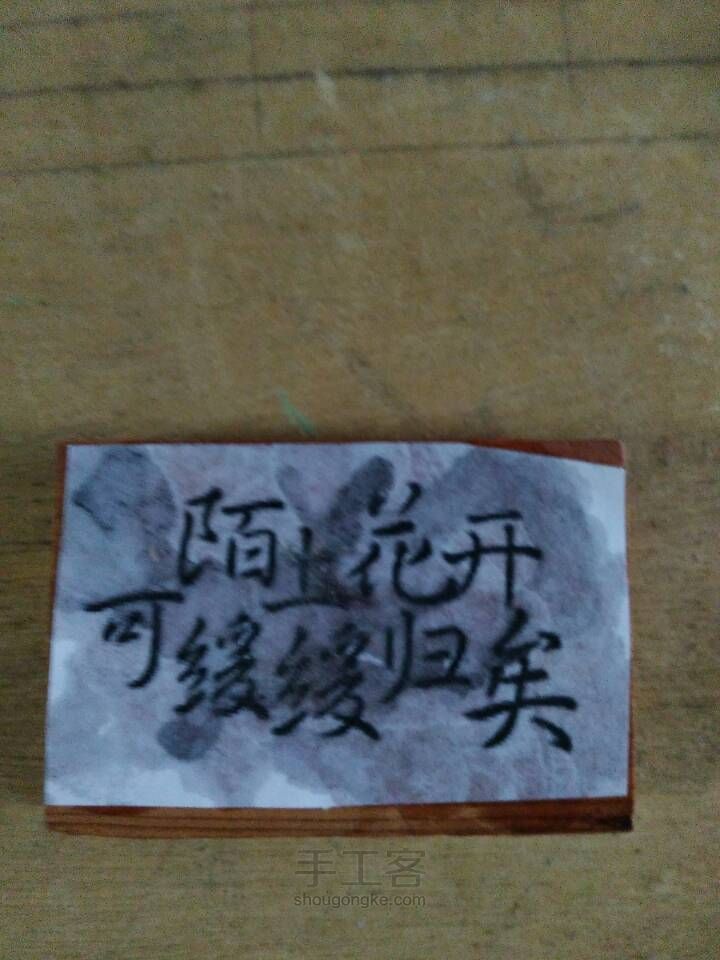 陌上花开
可缓缓归矣
手工客
shougongke.com